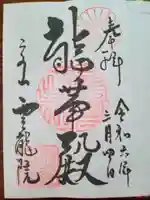 奉拝
令和六年
三月四日
龍華殿
雲龍院